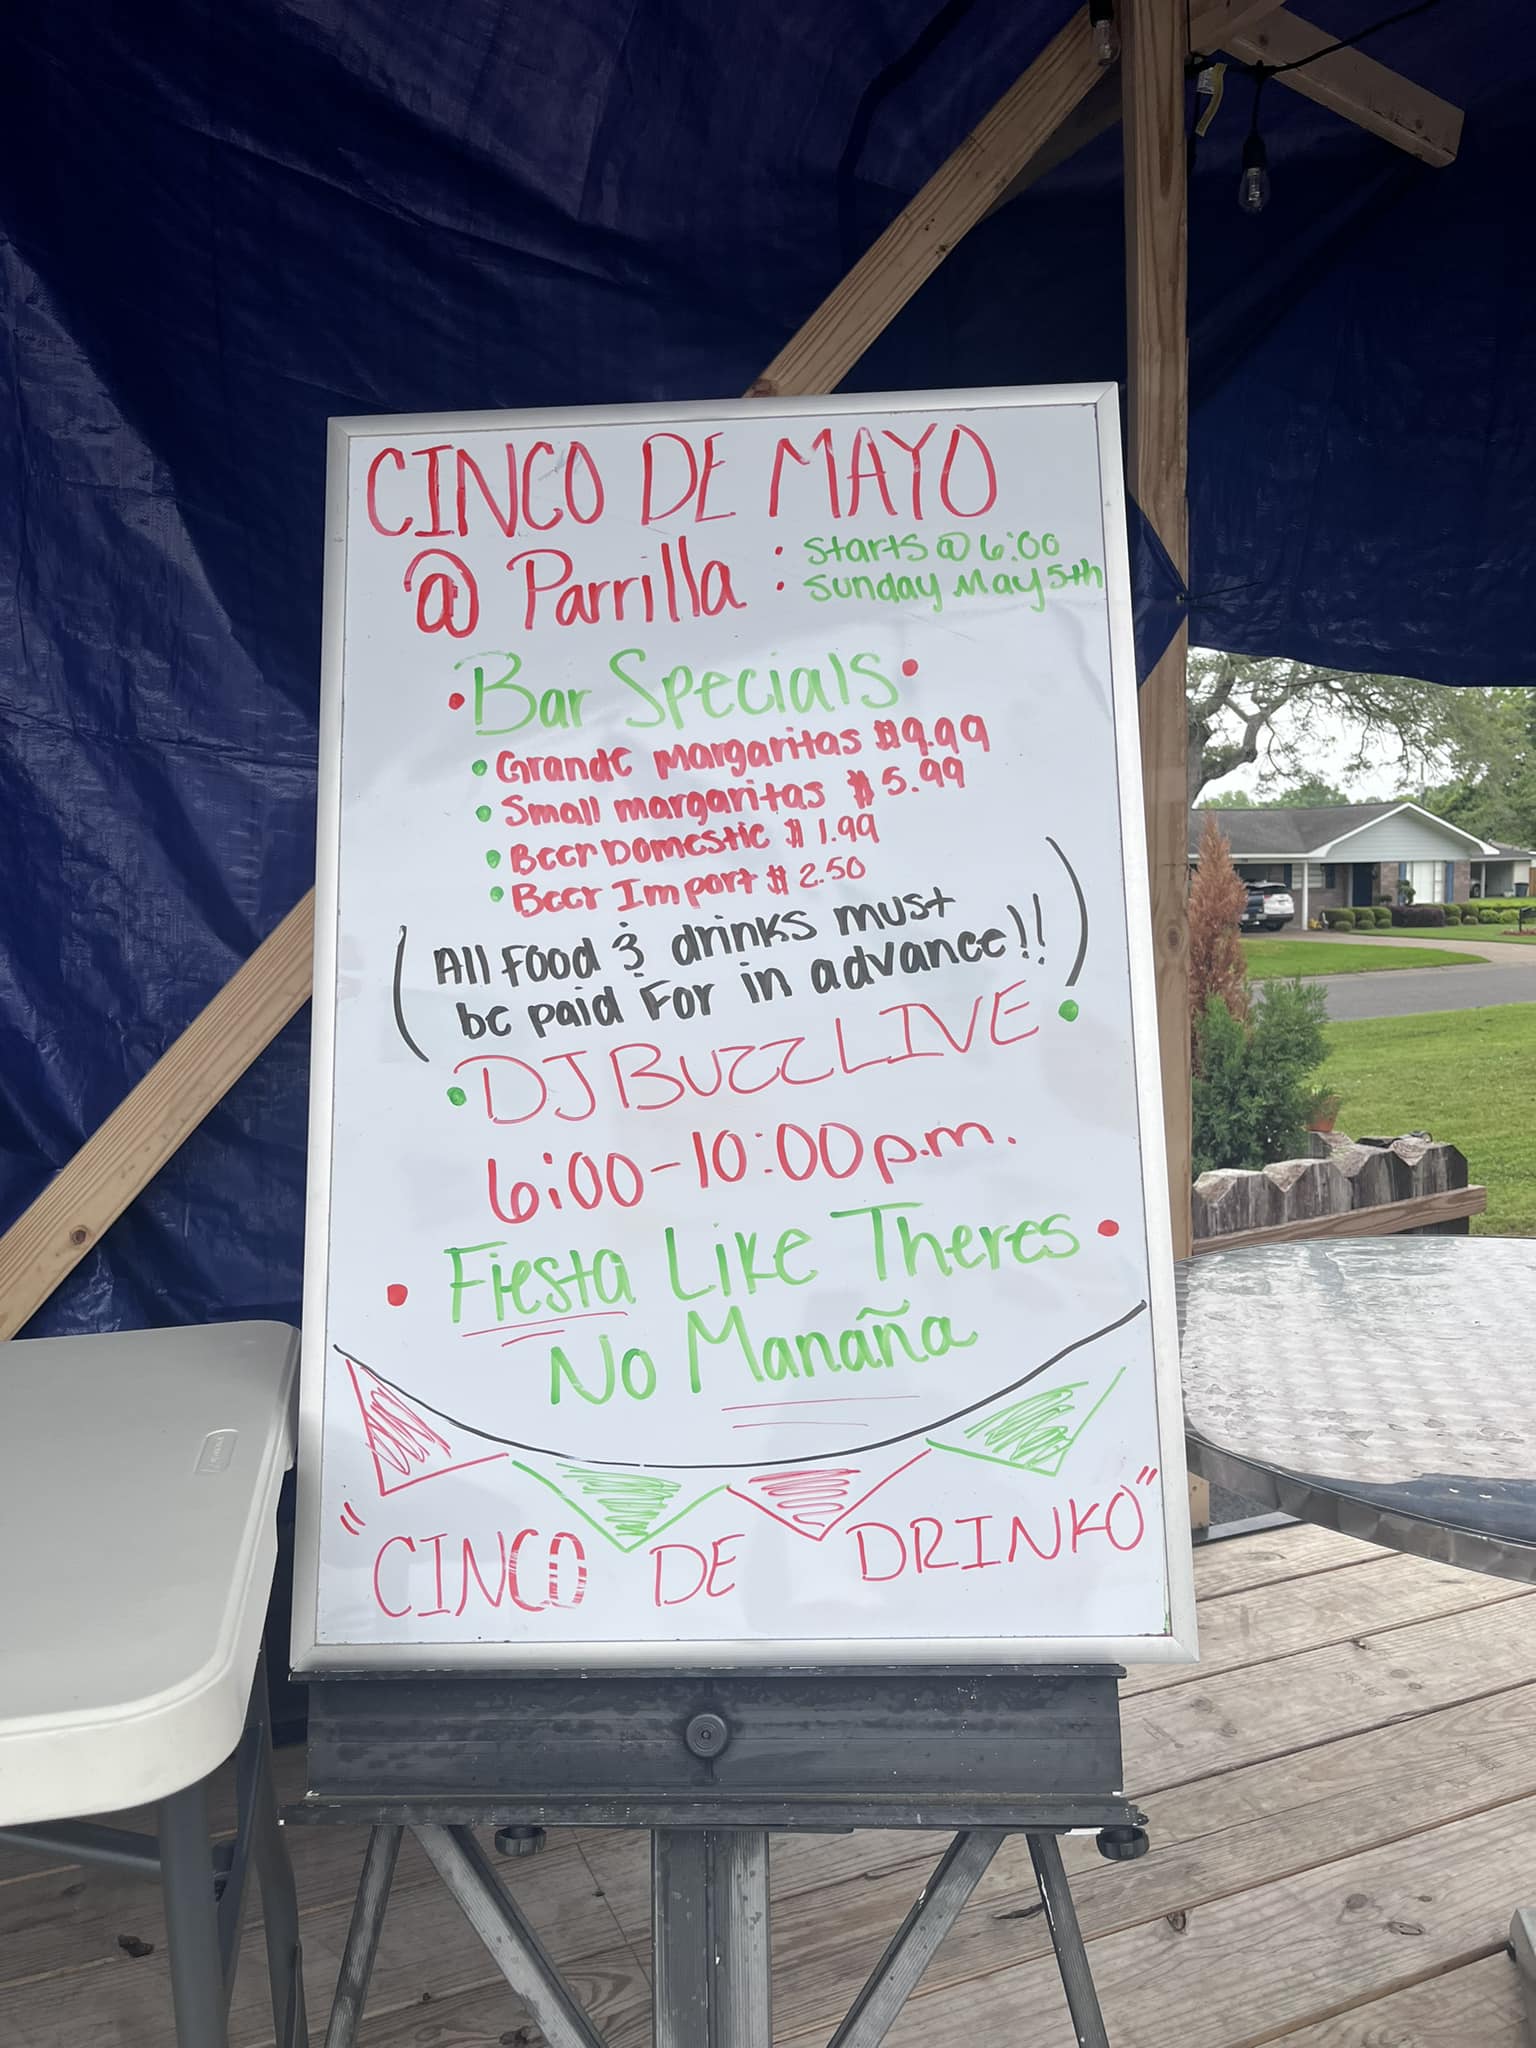 CINCO DE MAYO
@ Parrilla : Starts @ 6:00
Sunday May 5th
• Bar Specials •
• Grande margaritas $9.99
• Small margaritas $5.99
• Beer Domestic $1.99
• Beer Import $2.50
(All Food & drinks must
be paid For in advance!!)
• DJ BUZZ LIVE •
6:00-10:00 p.m.
• Fiesta Like Theres •
No Manaña
"CINCO DE DRINKO"